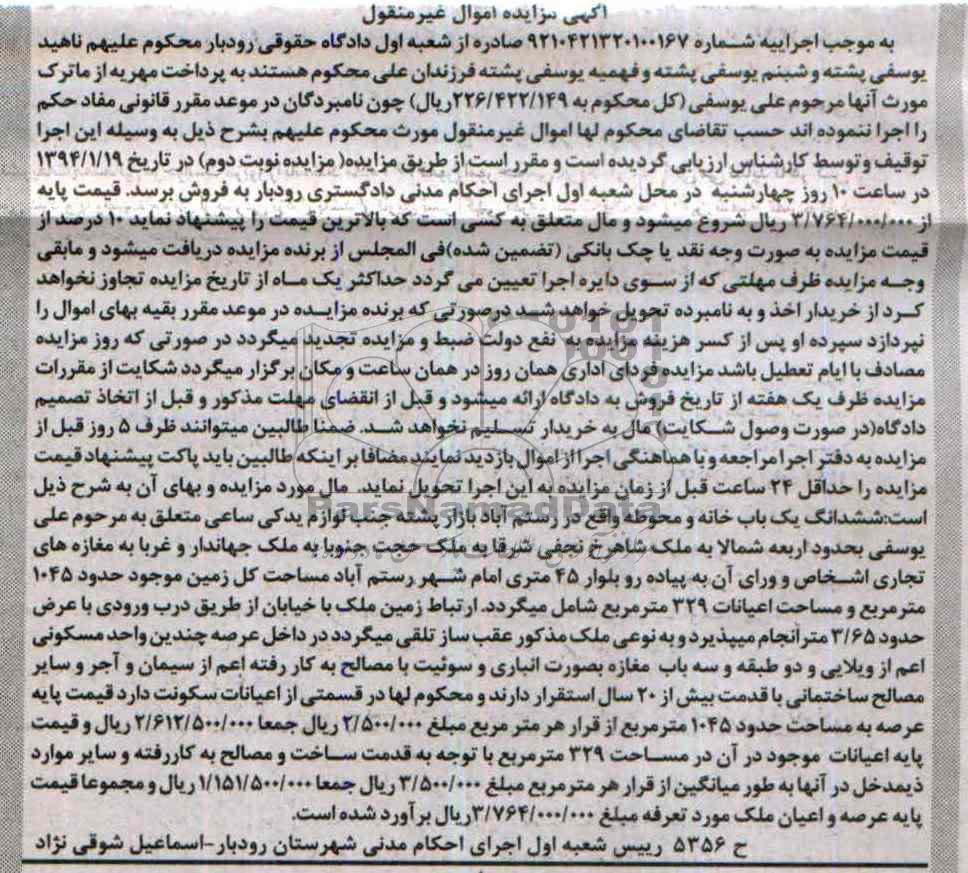 آگهی مزایده اموال غیرمنقول
به موجب اجراییه شماره ۹۲۱۰۴۲۱۳۲۰۱۰۰۱۶۷ صادره از شعبه اول دادگاه حقوقی رودبار محکوم علیهم ناهید
یوسفی پشته و شبنم یوسفی پشته و فهمیه یوسفی پشته فرزندان علی محکوم هستند به پرداخت مهریه از ماترک
مورث آنها مرحوم علی یوسفی (کل محکوم به ۲۲۶/۴۲۲/۱۴۹ریال) چون نامبردگان در موعد مقرر قانونی مفاد حکم
را اجرا ننموده اند حسب تقاضای محکوم لها اموال غیرمنقول مورث محکوم علیهم بشرح ذیل به وسیله این اجرا
توقیف وتوسط کارشناس ارزیابی گردیده است و مقرر است از طریق مزایده( مزایده نوبت دوم) در تاریخ ۱۳۹۴/۱/۱۹
در ساعت ۱۰ روز چهارشنبه در محل شعبه اول اجرای احکام مدنی دادگستری رودبار به فروش برسد. قیمت پایه
از ۳/۷۶۴/۰۰۰/۰۰۰ ریال شروع میشود و مال متعلق به کسی است که بالاترین قیمت را پیشنهاد نماید ۱۰ درصد از
قیمت مزایده به صورت وجه نقد یا چک بانکی (تضمین شده)فی المجلس از برنده مزایده دریافت میشود و مابقی
وجه مزایده ظرف مهلتی که از سوی دایره اجرا تعیین می گردد حداکثر یک ماه از تاریخ مزایده تجاوز نخواهد
کرد از خریدار اخذ و به نامبرده تحویل خواهد شد درصورتی که برنده مزایده در موعد مقرر بقیه بهای اموال را
نپردازد سپرده او پس از کسر هزینه مزایده به نفع دولت ضبط و مزایده تجدید میگردد در صورتی که روز مزایده
مصادف با ایام تعطیل باشد مزایده فردای اداری همان روز در همان ساعت و مکان برگزار میگردد شکایت از مقررات
مزایده ظرف یک هفته از تاریخ فروش به دادگاه ارائه میشود و قبل از انقضای مهلت مذکور و قبل از اتخاذ تصمیم
دادگاه(در صورت وصول شکایت) مال به خریدار تسلیم نخواهد شد. ضمنا طالبین میتوانند ظرف ۵ روز قبل از
مزایده به دفتر اجرا مراجعه و با هماهنگی اجرا از اموال بازدید نمایند مضافا بر اینکه طالبین باید پاکت پیشنهاد قیمت
مزایده را حداقل ۲۴ ساعت قبل از زمان مزایده به این اجرا تحویل نماید. مال مورد مزایده و بهای آن به شرح ذیل
است:ششدانگ یک باب خانه و محوطه واقع در رستم آباد بازار پشته جنب لوازم یدکی ساعی متعلق به مرحوم علی
یوسفی بحدود اربعه شمالا به ملک شاهرخ نجفی شرقا به ملک حجت جنوبا به ملک جهاندار و غربا به مغازه های
تجاری اشخاص و ورای آن به پیاده رو بلوار ۴۵ متری امام شهر رستم آباد مساحت کل زمین موجود حدود ۱۰۴۵
مترمربع و مساحت اعیانات ۳۲۹ مترمربع شامل میگردد. ارتباط زمین ملک با خیابان از طریق درب ورودی با عرض
حدود ۳/۶۵ مترانجام میپذیرد و به نوعی ملک مذکور عقب ساز تلقی میگردد در داخل عرصه چندین واحد مسکونی
اعم از ویلایی و دو طبقه و سه باب مغازه بصورت انباری و سوئیت با مصالح به کار رفته اعم از سیمان و آجر و سایر
مصالح ساختمانی با قدمت بیش از ۲۰ سال استقرار دارند و محکوم لها در قسمتی از اعیانات سکونت دارد قیمت پایه
عرصه به مساحت حدود ۱۰۴۵ مترمربع از قرار هر متر مربع مبلغ ۲/۵۰۰/۰۰۰ ریال جمعا ۲/۶۱۲/۵۰۰/۰۰۰ ریال و قیمت
پایه اعیانات موجود در آن در مساحت ۳۲۹ مترمربع با توجه به قدمت ساخت و مصالح به کاررفته و سایر موارد
ذیمدخل در آنها به طور میانگین از قرار هر مترمربع مبلغ ۳/۵۰۰/۰۰۰ ریال جمعا ۱/۱۵۱/۵۰۰/۰۰۰ ریال و مجموعا قیمت
پایه عرصه و اعیان ملک مورد تعرفه مبلغ ۳/۷۶۴/۰۰۰/۰۰۰ریال برآورد شده است.
ح ۵۳۵۶ رییس شعبه اول اجرای احکام مدنی شهرستان رودبار-اسماعیل شوقی نژاد
ParsNamadData